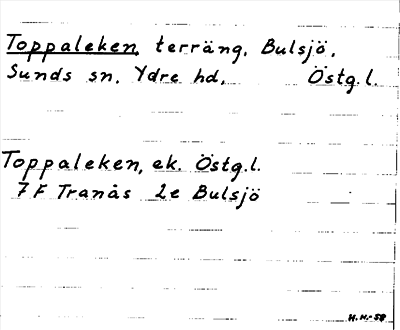 Toppaleken, terräng, Bulsjö,
Sunds sn, Ydre hd, Östg.l.
Toppaleken, ek. Östg.l.
7 F Tranås 2e Bulsjö
H.H.-58